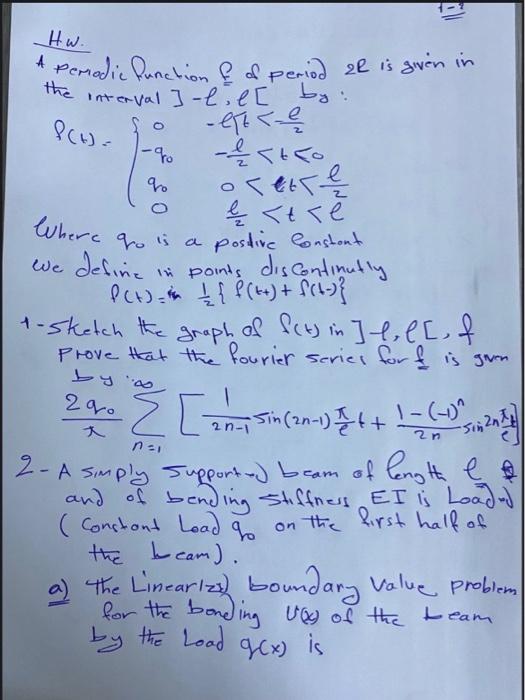 1-2
H.W.
A periodic function f of period 2l is given in
the interval ]-l, l[ by:
f(t) = { 0 -l<t<-l/2
-q0 -l/2 <t<0
q0 0<t<l/2
0 l/2 <t<l
Where q0 is a positive Constant
We define in points discontinutly
f(t) = 1/2 { f(t+) + f(t-)}
1-Sketch the graph of f(t) in ]-l, l[, &
Prove that the fourier series for f is given
by ∞
2q0/π Σ [ 1/(2n-1) sin(2n-1) π/l t + (1-(-1)^n)/2n sin 2n π t/l ]
n=1
2-A simply supported beam of length l
and of bending stiffness EI is Loaded
(Constant Load q0 on the first half of
the beam).
a) the Linearized boundary Value problem
for the bending U(x) of the beam
by the Load q(x) is